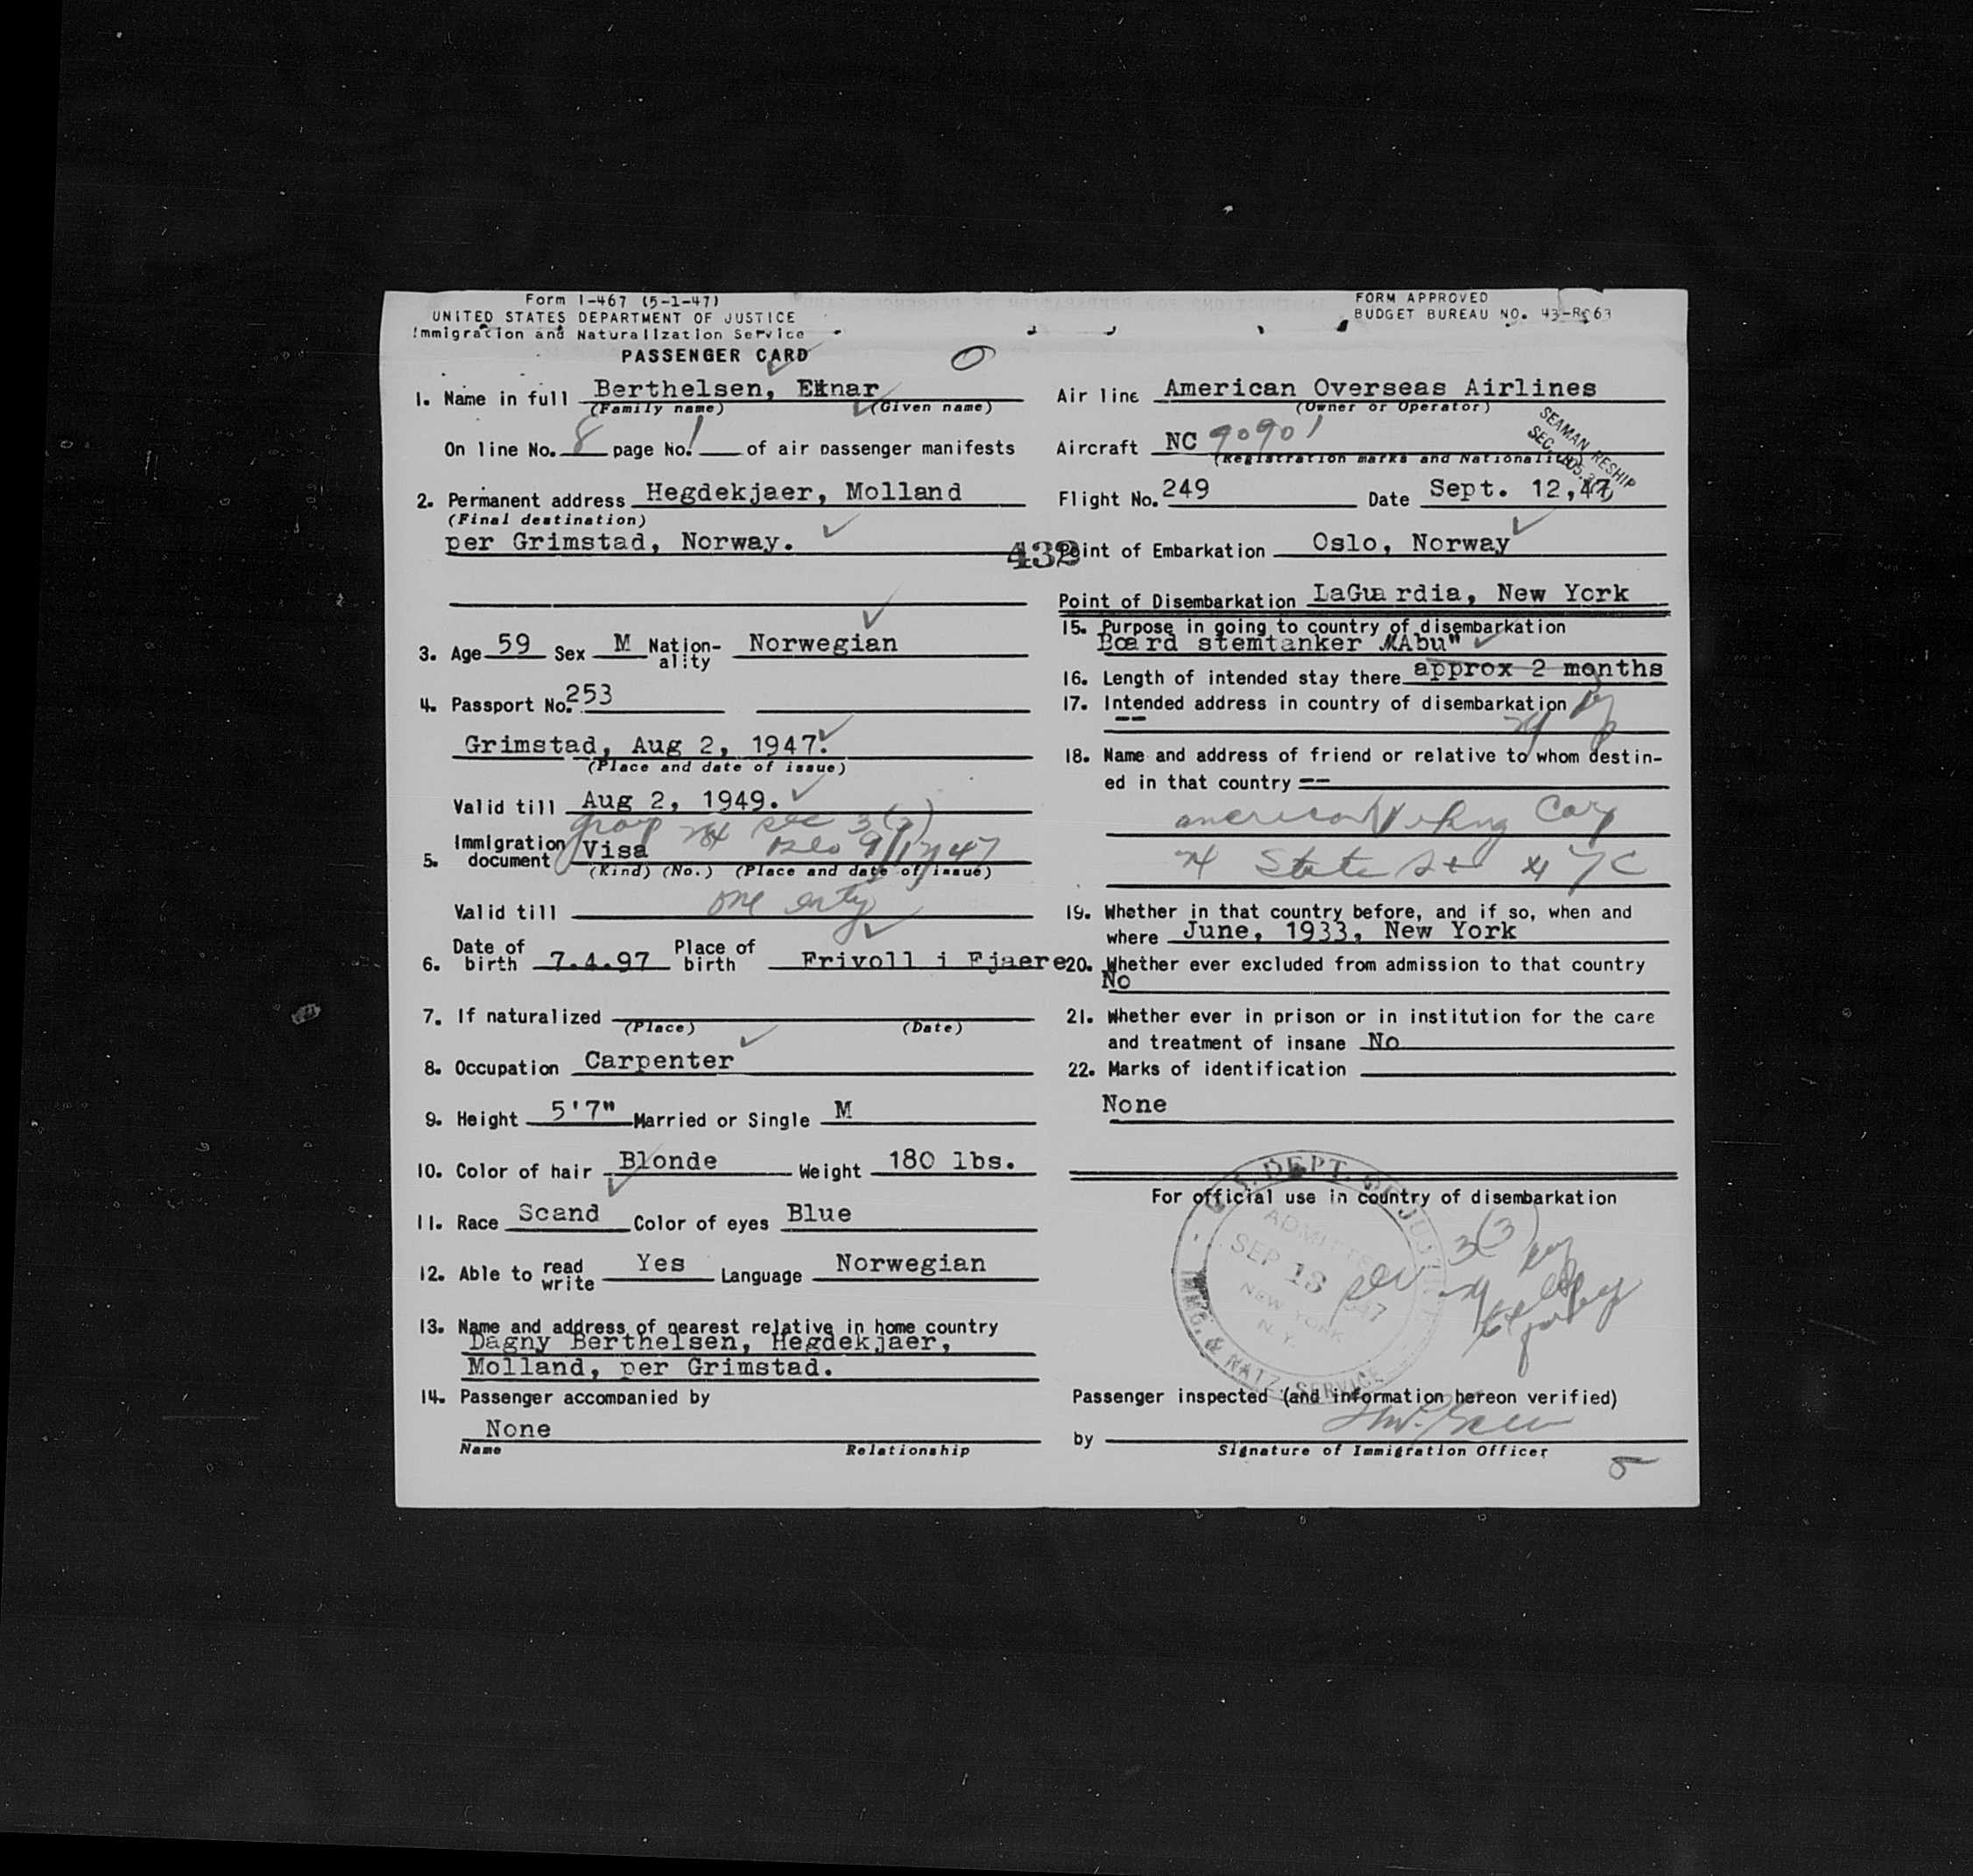 Form I-467 (5-1-47)
UNITED STATES DEPARTMENT OF JUSTICE
Immigration and Naturalization Service
PASSENGER CARD
FORM APPROVED
BUDGET BUREAU NO. 43-R063
1. Name in full Berthelsen, Einar
(Family name) (Given name)
On line No. 8 page No. 1 of air passenger manifests
2. Permanent address Hegdekjaer, Molland
(Final destination)
per Grimstad, Norway.
432
3. Age 59 Sex M Nation-ality Norwegian
4. Passport No. 253
Grimstad, Aug 2, 1947.
(Place and date of issue)
Valid till Aug 2, 1949.
group sec 3(3)
5. Immigration document Visa Oslo 9/12/47
(Kind) (No.) (Place and date of issue)
Valid till one entry
6. Date of birth 7.4.97 Place of birth Frivoll i Fjaere
7. If naturalized
(Place) (Date)
8. Occupation Carpenter
9. Height 5'7" Married or Single M
10. Color of hair Blonde Weight 180 lbs.
11. Race Scand Color of eyes Blue
12. Able to read write Yes Language Norwegian
13. Name and address of nearest relative in home country
Dagny Berthelsen, Hegdekjaer,
Molland, per Grimstad.
14. Passenger accompanied by
None
Name Relationship
Air line American Overseas Airlines
(Owner or Operator)
SEAMAN RESHIP
Aircraft NC 90901
(Registration marks and Nationality)
Flight No. 249 Date Sept. 12,47
Point of Embarkation Oslo, Norway
Point of Disembarkation LaGuardia, New York
15. Purpose in going to country of disembarkation
Board stemtanker "Abu"
16. Length of intended stay there approx 2 months
17. Intended address in country of disembarkation
--
18. Name and address of friend or relative to whom destin-
ed in that country --
American Viking Corp
24 State St NYC
19. Whether in that country before, and if so, when and
where June, 1933, New York
20. Whether ever excluded from admission to that country
No
21. Whether ever in prison or in institution for the care
and treatment of insane No
22. Marks of identification
None
For official use in country of disembarkation
U.S. DEPT. OF JUSTICE
ADMITTED
SEP 13 1947
NEW YORK
N. Y.
IMMG. & NATZ. SERVICE
sec 3(3)
Passenger inspected (and information hereon verified)
by
Signature of Immigration Officer
5